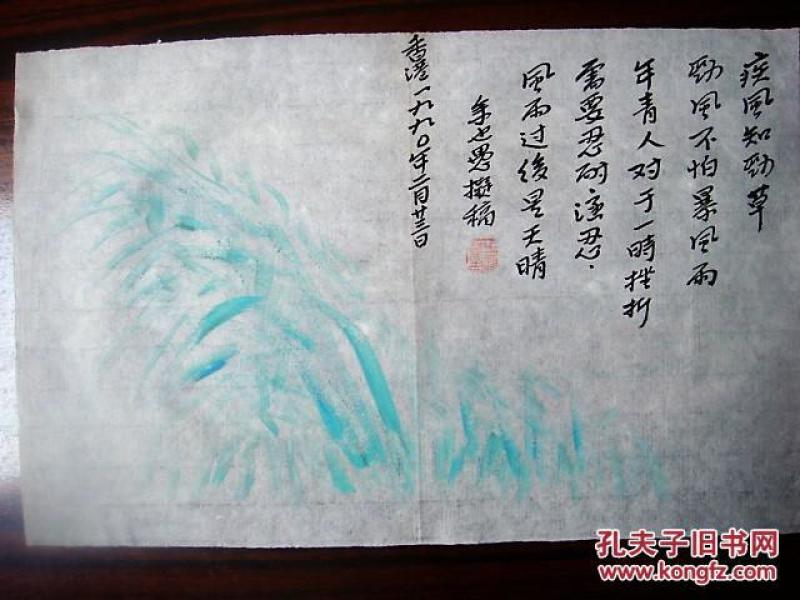 疾風知勁草
勁風不怕暴風雨
年青人对于一時挫折
需要忍耐容忍.
風雨过後是天晴
余也愚擬稿
香港一九九〇年二月廿三日
孔夫子旧书网
www.kongfz.com